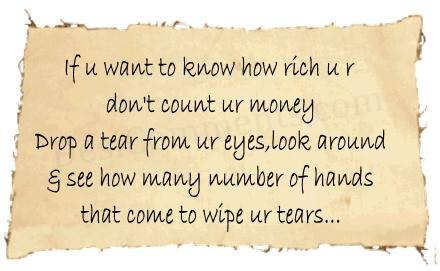 If u want to know how rich u r
don't count ur money
Drop a tear from ur eyes,look around
& see how many number of hands
that come to wipe ur tears...